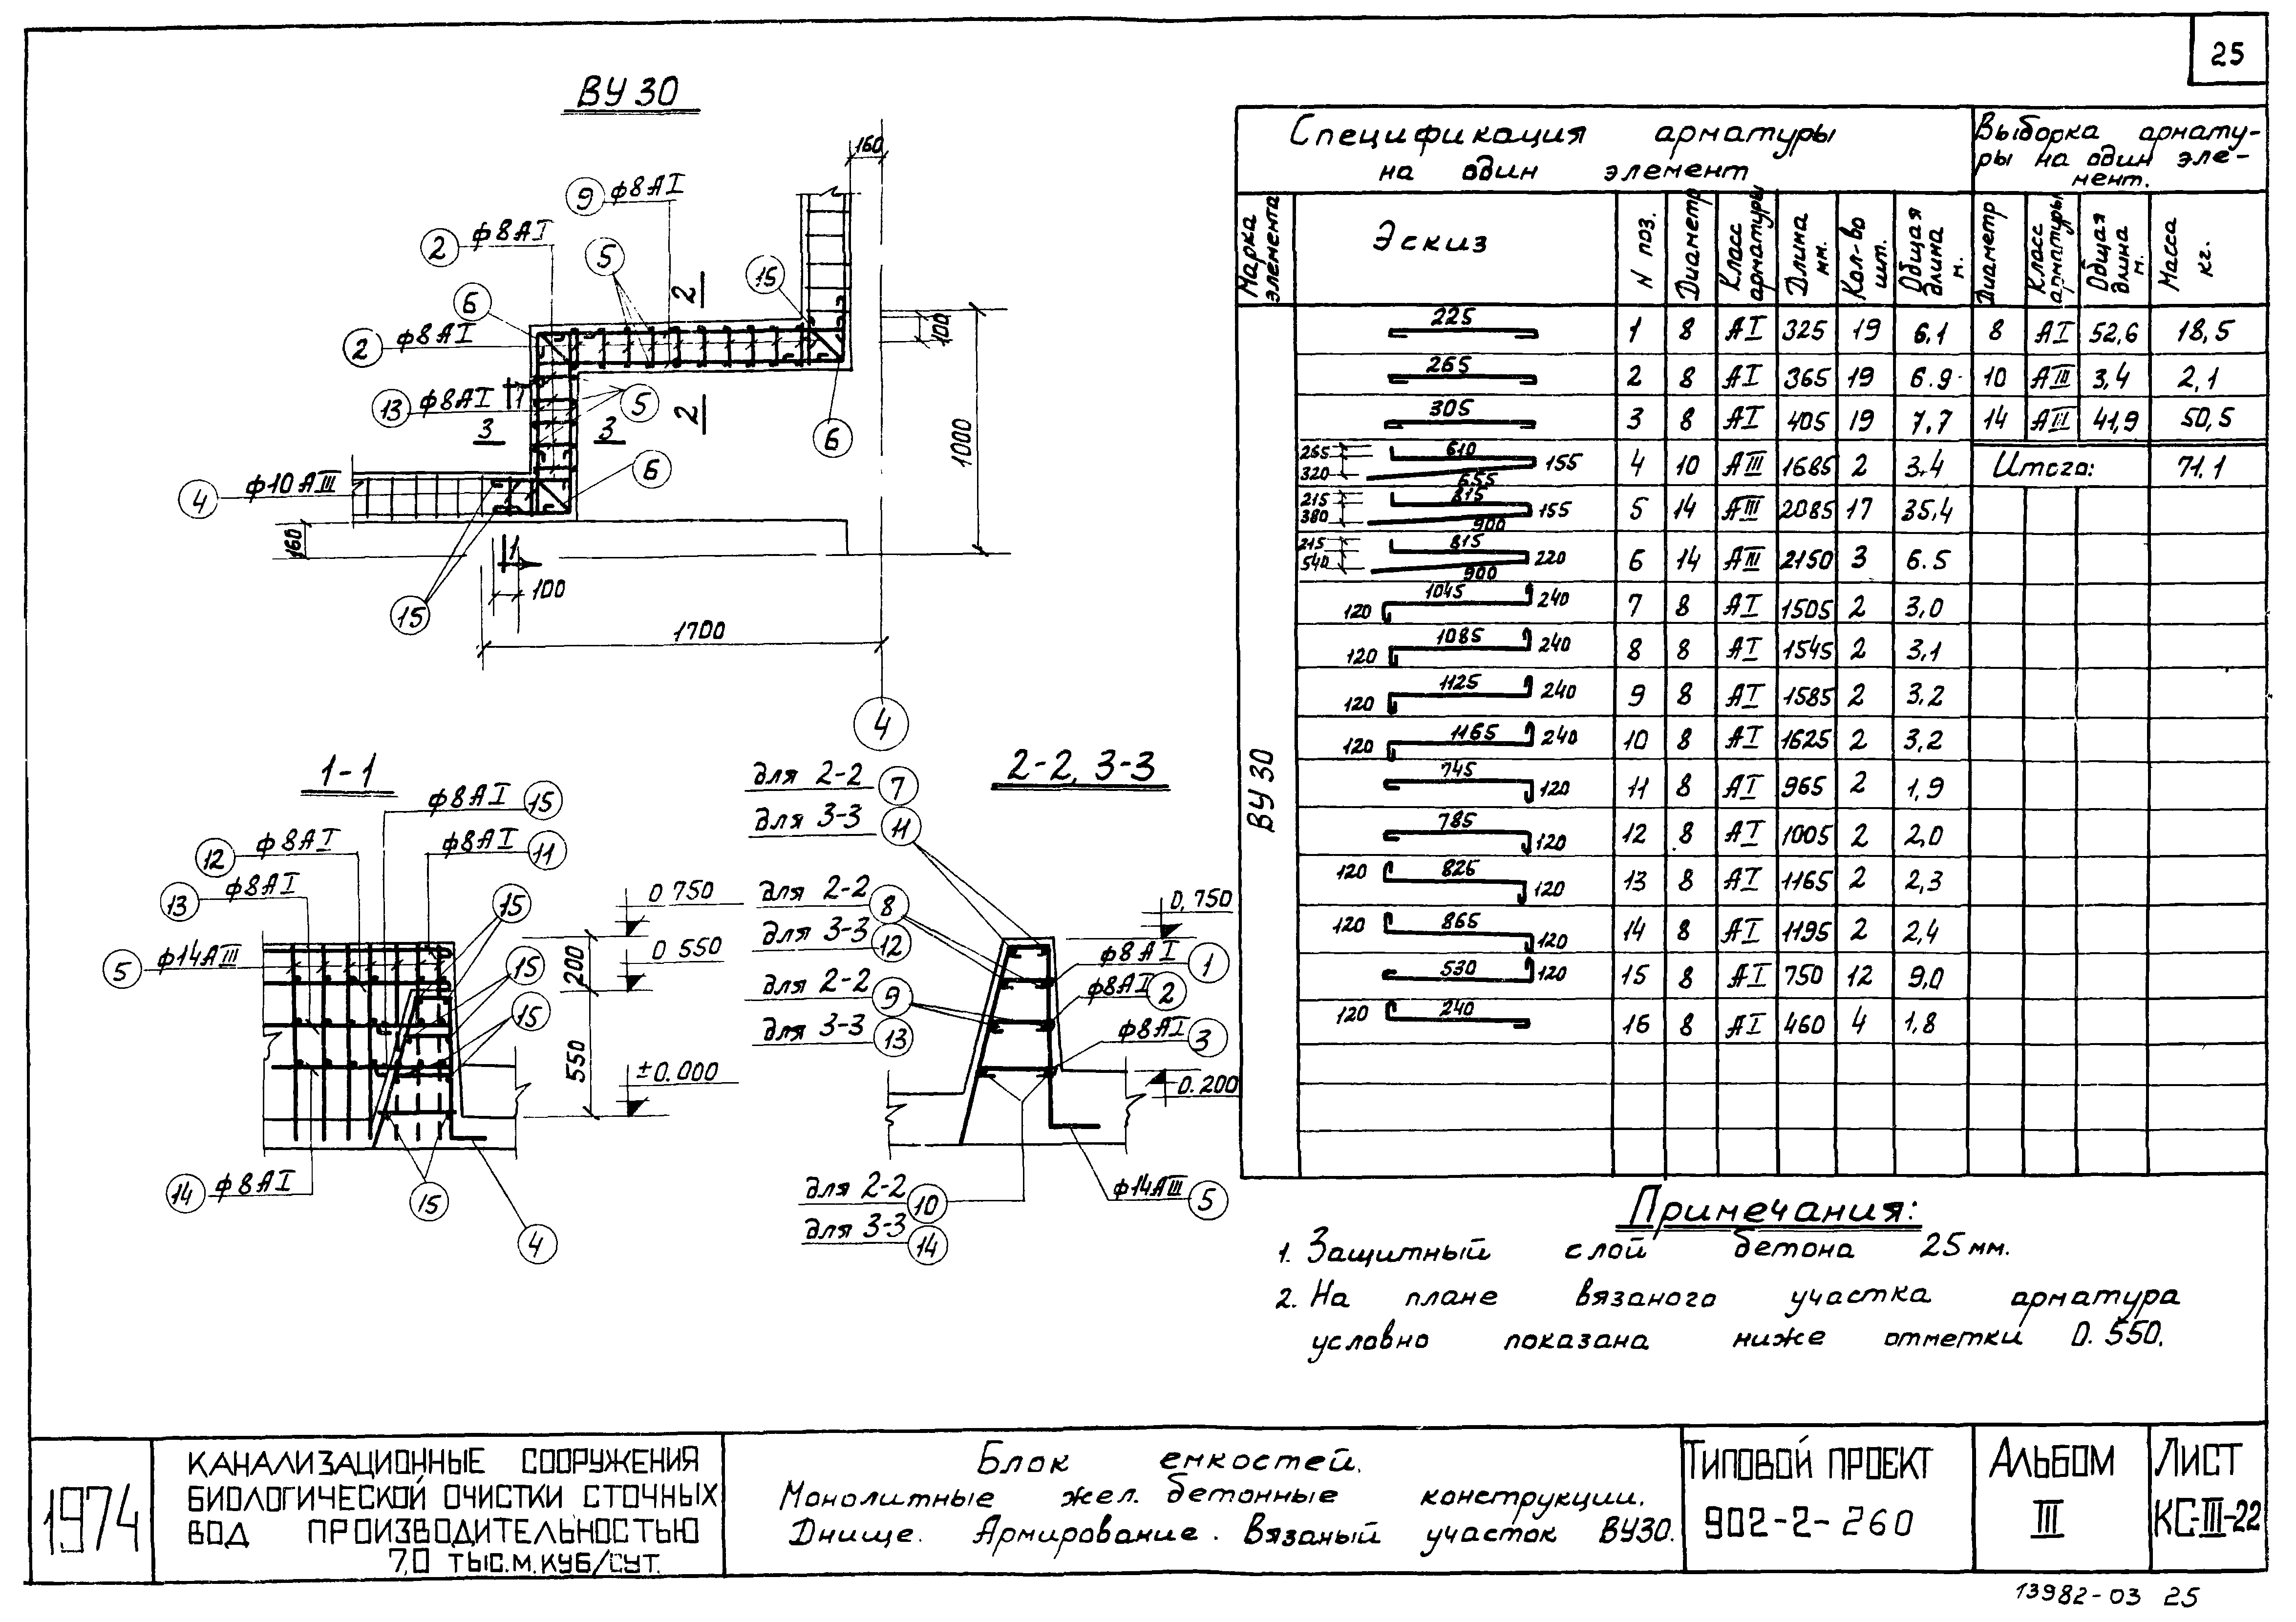 25
ВУ 30
160
9 ф8АI
2 ф8АI
5
2
15
6
2 ф8АI
100
13 ф8АI
1
5
2
3 3
6
1000
6
4 ф10АIII
160
1
100
15
1700
4
1-1
ф8АI 15
12 ф8АI
ф8АI 11
13 ф8АI
15
0 750
5 ф14АIII
200
0 550
15
15
550
±0.000
14 ф8АI
15
4
2-2, 3-3
для 2-2 7
для 3-3 11
для 2-2 8
для 3-3 12
0,750
ф8АI 1
для 2-2 9
ф8АI 2
для 3-3 13
ф8АI 3
0.200
для 2-2 10
ф14АIII 5
для 3-3 14
Спецификация арматуры
на один элемент
Выборка армату-
ры на один эле-
мент.
Марка элемента
Эскиз
N поз.
Диаметр
Класс арматуры
Длина мм.
Кол-во шт.
Общая длина м.
Диаметр
Класс арматуры
Общая длина м.
Масса кг.
ВУ 30
225 1 8 АI 325 19 6,1 8 АI 52,6 18,5
265 2 8 АI 365 19 6.9 10 АIII 3,4 2,1
305 3 8 АI 405 19 7,7 14 АIII 41,9 50,5
265 320 610 655 155 4 10 АIII 1685 2 3.4 Итого: 71.1
215 380 815 900 155 5 14 АIII 2085 17 35,4
215 540 815 900 220 6 14 АIII 2150 3 6.5
120 1045 240 7 8 АI 1505 2 3,0
120 1085 240 8 8 АI 1545 2 3,1
120 1125 240 9 8 АI 1585 2 3,2
120 1165 240 10 8 АI 1625 2 3,2
745 120 11 8 АI 965 2 1,9
785 120 12 8 АI 1005 2 2,0
120 825 120 13 8 АI 1165 2 2,3
120 865 120 14 8 АI 1195 2 2,4
530 120 15 8 АI 750 12 9,0
120 240 16 8 АI 460 4 1,8
Примечания:
1. Защитный слой бетона 25 мм.
2. На плане вязаного участка арматура
условно показана ниже отметки 0.550.
1974
КАНАЛИЗАЦИОННЫЕ СООРУЖЕНИЯ
БИОЛОГИЧЕСКОЙ ОЧИСТКИ СТОЧНЫХ
ВОД ПРОИЗВОДИТЕЛЬНОСТЬЮ
7,0 ТЫС.М.КУБ/СУТ.
Блок емкостей.
Монолитные жел. бетонные конструкции.
Днище. Армирование. Вязаный участок ВУ30.
ТИПОВОЙ ПРОЕКТ
902-2-260
АЛЬБОМ
III
ЛИСТ
КС-III-22
13982-03 25